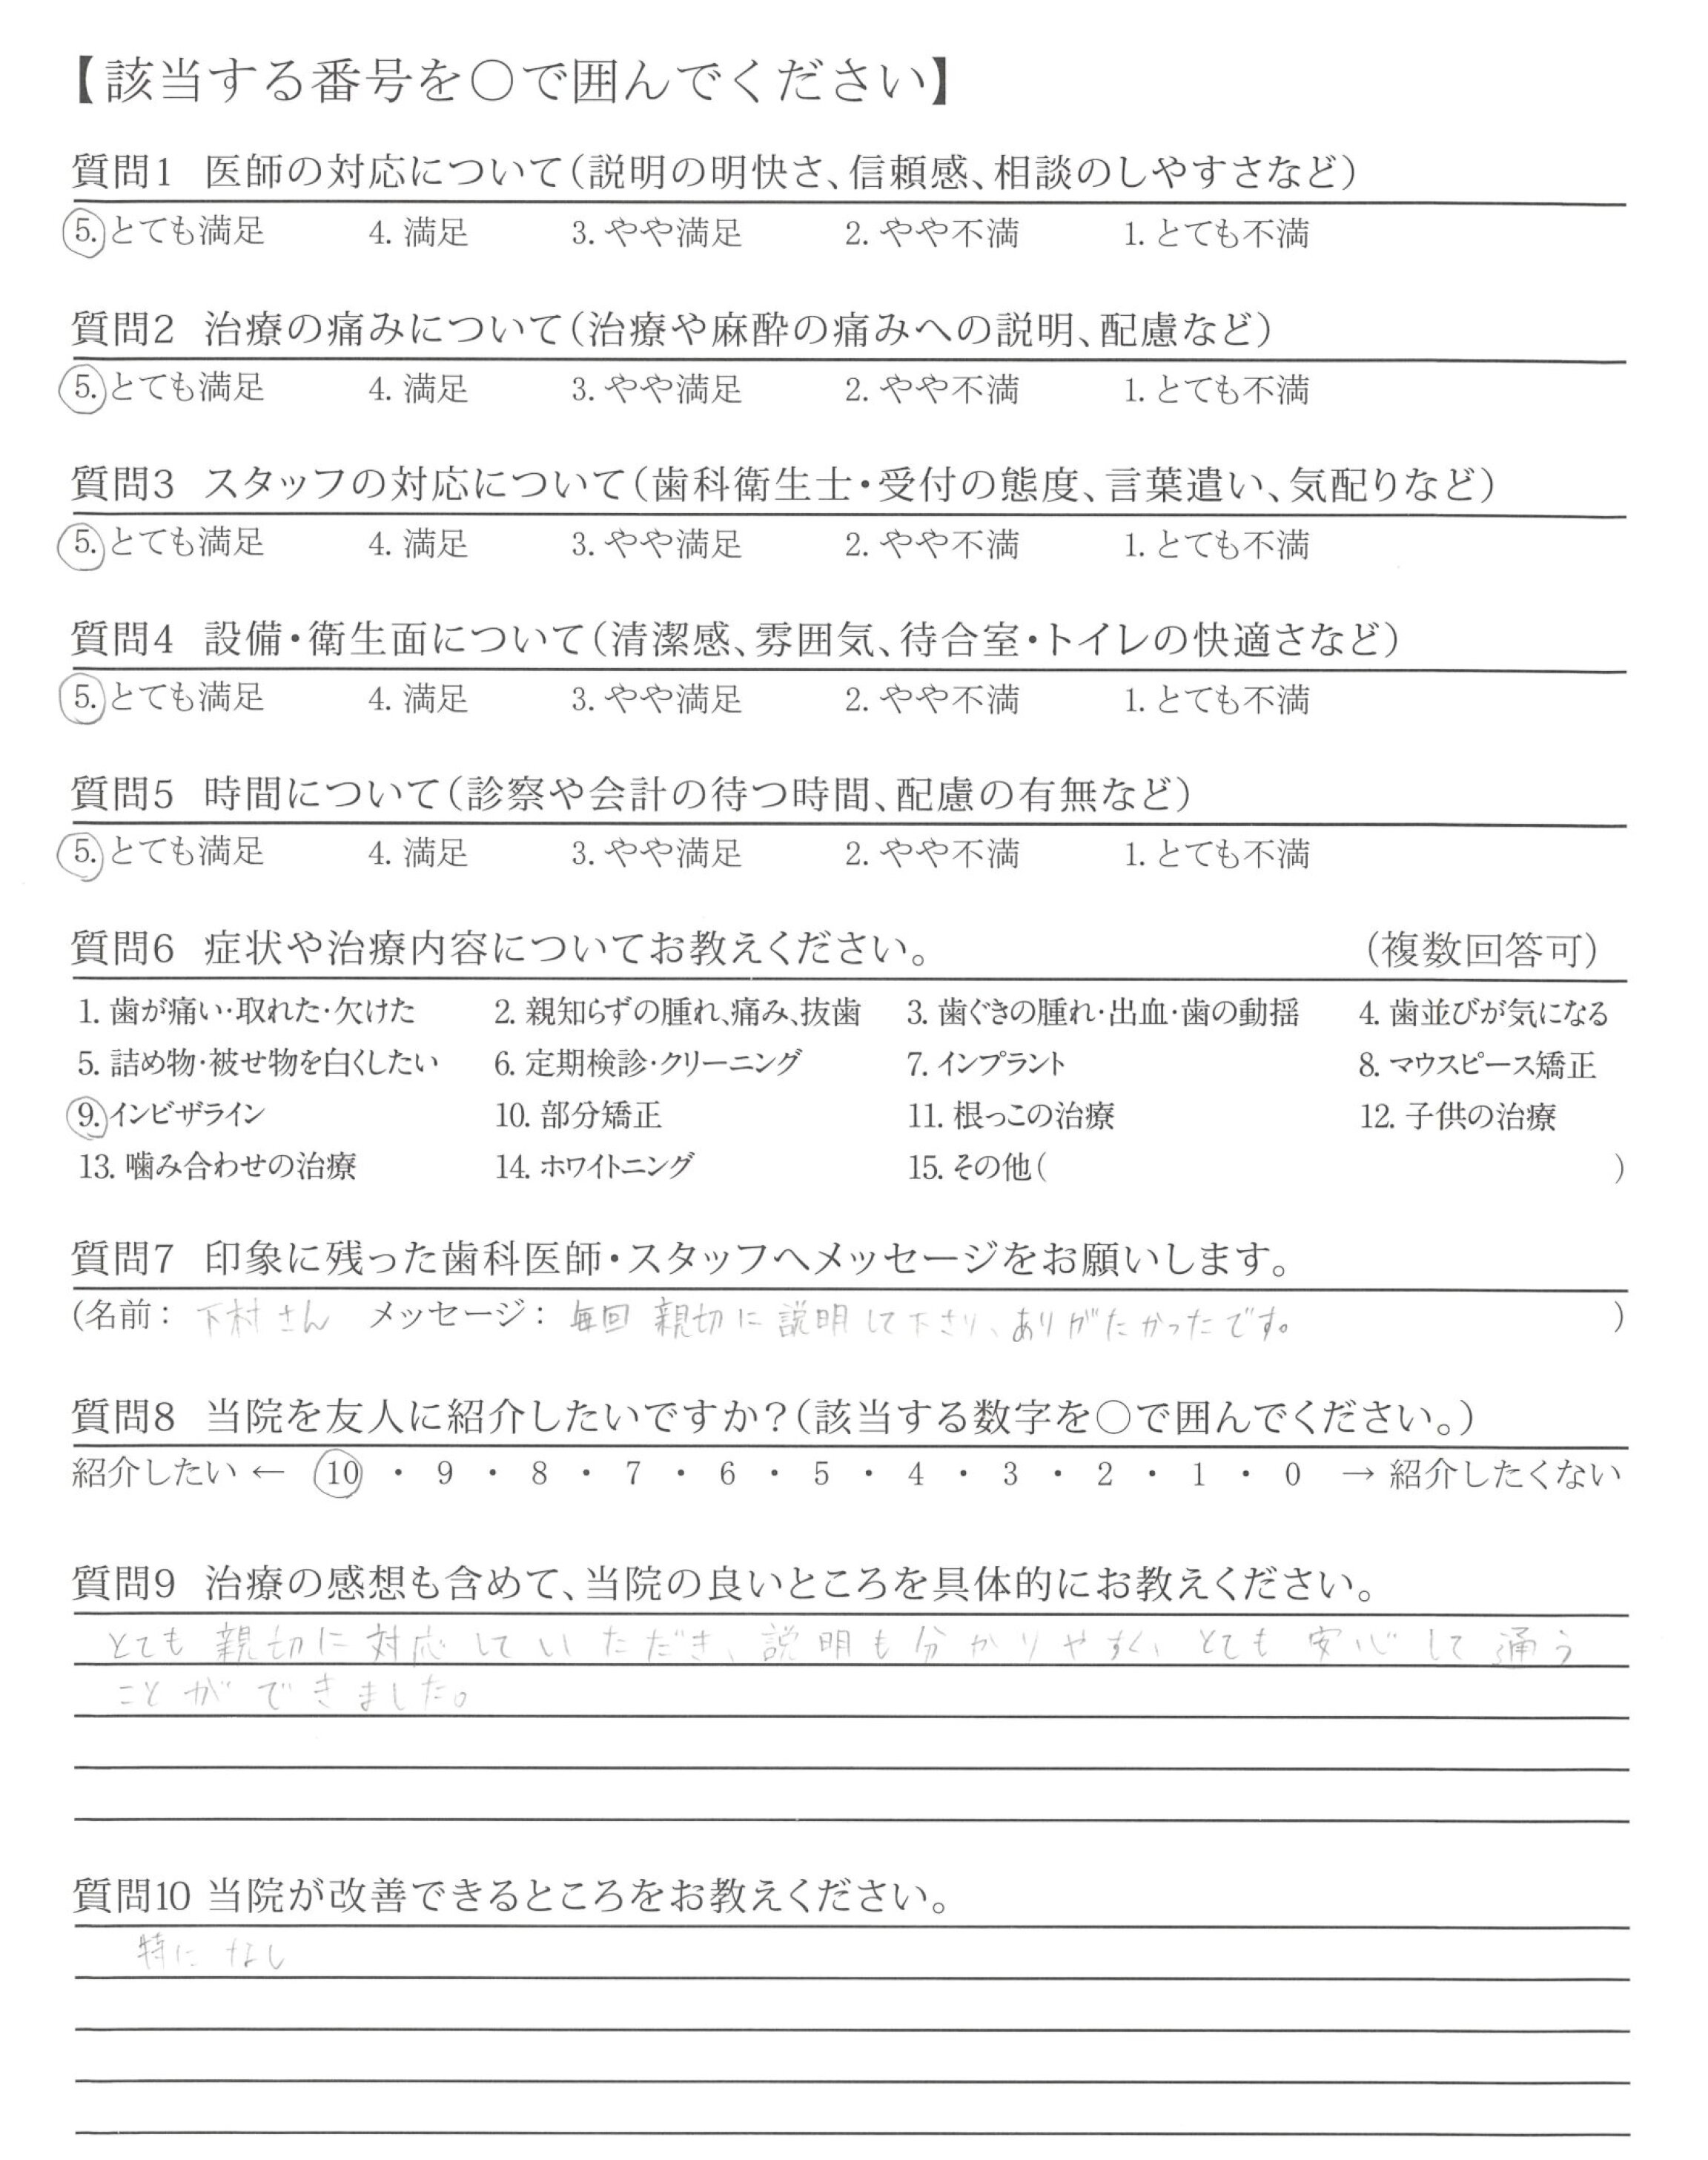 【該当する番号を○で囲んでください】
質問1 医師の対応について(説明の明快さ、信頼感、相談のしやすさなど)
5. とても満足 4. 満足 3. やや満足 2. やや不満 1. とても不満
質問2 治療の痛みについて(治療や麻酔の痛みへの説明、配慮など)
5. とても満足 4. 満足 3. やや満足 2. やや不満 1. とても不満
質問3 スタッフの対応について(歯科衛生士・受付の態度、言葉遣い、気配りなど)
5. とても満足 4. 満足 3. やや満足 2. やや不満 1. とても不満
質問4 設備・衛生面について(清潔感、雰囲気、待合室・トイレの快適さなど)
5. とても満足 4. 満足 3. やや満足 2. やや不満 1. とても不満
質問5 時間について(診察や会計の待つ時間、配慮の有無など)
5. とても満足 4. 満足 3. やや満足 2. やや不満 1. とても不満
質問6 症状や治療内容についてお教えください。 (複数回答可)
1. 歯が痛い・取れた・欠けた 2. 親知らずの腫れ、痛み、抜歯 3. 歯ぐきの腫れ・出血・歯の動揺 4. 歯並びが気になる
5. 詰め物・被せ物を白くしたい 6. 定期検診・クリーニング 7. インプラント 8. マウスピース矯正
9. インビザライン 10. 部分矯正 11. 根っこの治療 12. 子供の治療
13. 噛み合わせの治療 14. ホワイトニング 15. その他( )
質問7 印象に残った歯科医師・スタッフへメッセージをお願いします。
(名前: 下村さん メッセージ: 毎回 親切に説明して下さり、ありがたかったです。 )
質問8 当院を友人に紹介したいですか?(該当する数字を○で囲んでください。)
紹介したい ← 10 ・ 9 ・ 8 ・ 7 ・ 6 ・ 5 ・ 4 ・ 3 ・ 2 ・ 1 ・ 0 → 紹介したくない
質問9 治療の感想も含めて、当院の良いところを具体的にお教えください。
とても親切に対応していただき、説明も分かりやすく、とても安心して通う
ことができました。
質問10 当院が改善できるところをお教えください。
特になし